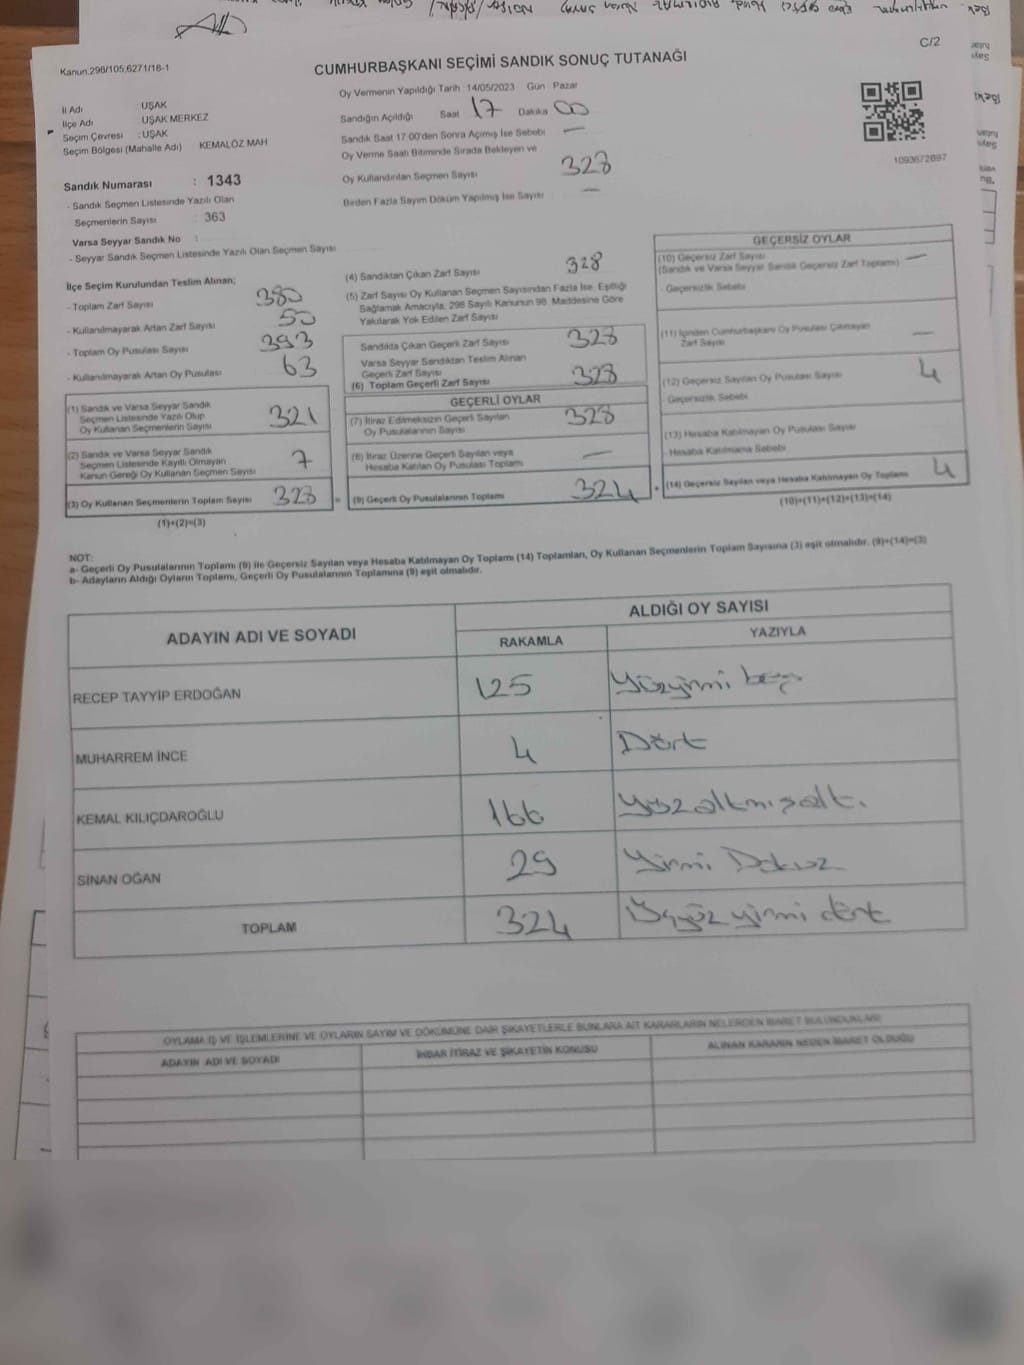 C/2
Kanun:298/105,6271/18-1
CUMHURBAŞKANI SEÇİMİ SANDIK SONUÇ TUTANAĞI
İl Adı UŞAK
İlçe Adı UŞAK MERKEZ
Seçim Çevresi : UŞAK
Seçim Bölgesi (Mahalle Adı) KEMALÖZ MAH
Sandık Numarası : 1343
- Sandık Seçmen Listesinde Yazılı Olan
Seçmenlerin Sayısı : 363
Varsa Seyyar Sandık No :
- Seyyar Sandık Seçmen Listesinde Yazılı Olan Seçmen Sayısı
Oy Vermenin Yapıldığı Tarih 14/05/2023 Gün : Pazar
Sandığın Açıldığı Saat 17 Dakika 00
Sandık Saat 17.00'den Sonra Açımış İse Sebebi —
Oy Verme Saati Bitiminde Sırada Bekleyen ve
Oy Kullandırılan Seçmen Sayısı 328
Birden Fazla Sayım Döküm Yapılmış İse Sayısı —
1093672697
İlçe Seçim Kurulundan Teslim Alınan;
- Toplam Zarf Sayısı 380
- Kullanılmayarak Artan Zarf Sayısı 50
- Toplam Oy Pusulası Sayısı 393
- Kullanılmayarak Artan Oy Pusulası 63
(1) Sandık ve Varsa Seyyar Sandık
Seçmen Listesinde Yazılı Olup
Oy Kullanan Seçmenlerin Sayısı 321
(2) Sandık ve Varsa Seyyar Sandık
Seçmen Listesinde Kayıtlı Olmayan
Kanun Gereği Oy Kullanan Seçmen Sayısı 7
(3) Oy Kullanan Seçmenlerin Toplam Sayısı 328 =
(1)+(2)=(3)
(4) Sandıktan Çıkan Zarf Sayısı 328
(5) Zarf Sayısı Oy Kullanan Seçmen Sayısından Fazla İse, Eşitliği
Sağlamak Amacıyla, 298 Sayılı Kanunun 98. Maddesine Göre
Yakılarak Yok Edilen Zarf Sayısı
Sandıkta Çıkan Geçerli Zarf Sayısı 328
Varsa Seyyar Sandıktan Teslim Alınan
Geçerli Zarf Sayısı
(6) Toplam Geçerli Zarf Sayısı 328
GEÇERLİ OYLAR
(7) İtiraz Edilmeksizin Geçerli Sayılan
Oy Pusulalarının Sayısı 328
(8) İtiraz Üzerine Geçerli Sayılan veya
Hesaba Katılan Oy Pusulası Toplamı —
(9) Geçerli Oy Pusulalarının Toplamı 324 +
GEÇERSİZ OYLAR
(10) Geçersiz Zarf Sayısı —
(Sandık ve Varsa Seyyar Sandık Geçersiz Zarf Toplamı)
- Geçersizlik Sebebi
(11) İçinden Cumhurbaşkanı Oy Pusulası Çıkmayan
Zarf Sayısı —
(12) Geçersiz Sayılan Oy Pusulası Sayısı 4
- Geçersizlik Sebebi
(13) Hesaba Katılmayan Oy Pusulası Sayısı
- Hesaba Katılmama Sebebi
(14) Geçersiz Sayılan veya Hesaba Katılmayan Oy Toplamı 4
(10)+(11)+(12)+(13)=(14)
NOT:
a- Geçerli Oy Pusulalarının Toplamı (9) ile Geçersiz Sayılan veya Hesaba Katılmayan Oy Toplamı (14) Toplamları, Oy Kullanan Seçmenlerin Toplam Sayısına (3) eşit olmalıdır. (9)+(14)=(3)
b- Adayların Aldığı Oyların Toplamı, Geçerli Oy Pusulalarının Toplamına (9) eşit olmalıdır.
ADAYIN ADI VE SOYADI
ALDIĞI OY SAYISI
RAKAMLA YAZIYLA
RECEP TAYYİP ERDOĞAN 125 Yüzyirmi beş
MUHARREM İNCE 4 Dört
KEMAL KILIÇDAROĞLU 166 Yüzaltmışaltı
SİNAN OĞAN 29 Yirmi Dokuz
TOPLAM 324 Üçyüz yirmi dört
OYLAMA İŞ VE İŞLEMLERİNE VE OYLARIN SAYIM VE DÖKÜMÜNE DAİR ŞİKAYETLERLE BUNLARA AİT KARARLARIN NELERDEN İBARET BULUNDUKLARI
ADAYIN ADI VE SOYADI İHBAR İTİRAZ VE ŞİKAYETİN KONUSU ALINAN KARARIN NEDEN İBARET OLDUĞU